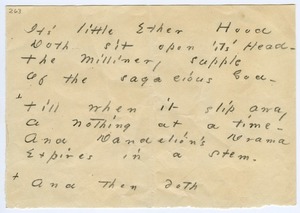 263
Its' little Ether Hood
Doth sit open 'its' Head -
the Milliner, supple
Of the sagacious God -
+
till when it slip away
a nothing at a time -
And Dandelion's Drama
Expires in a stem.
+ And then doth